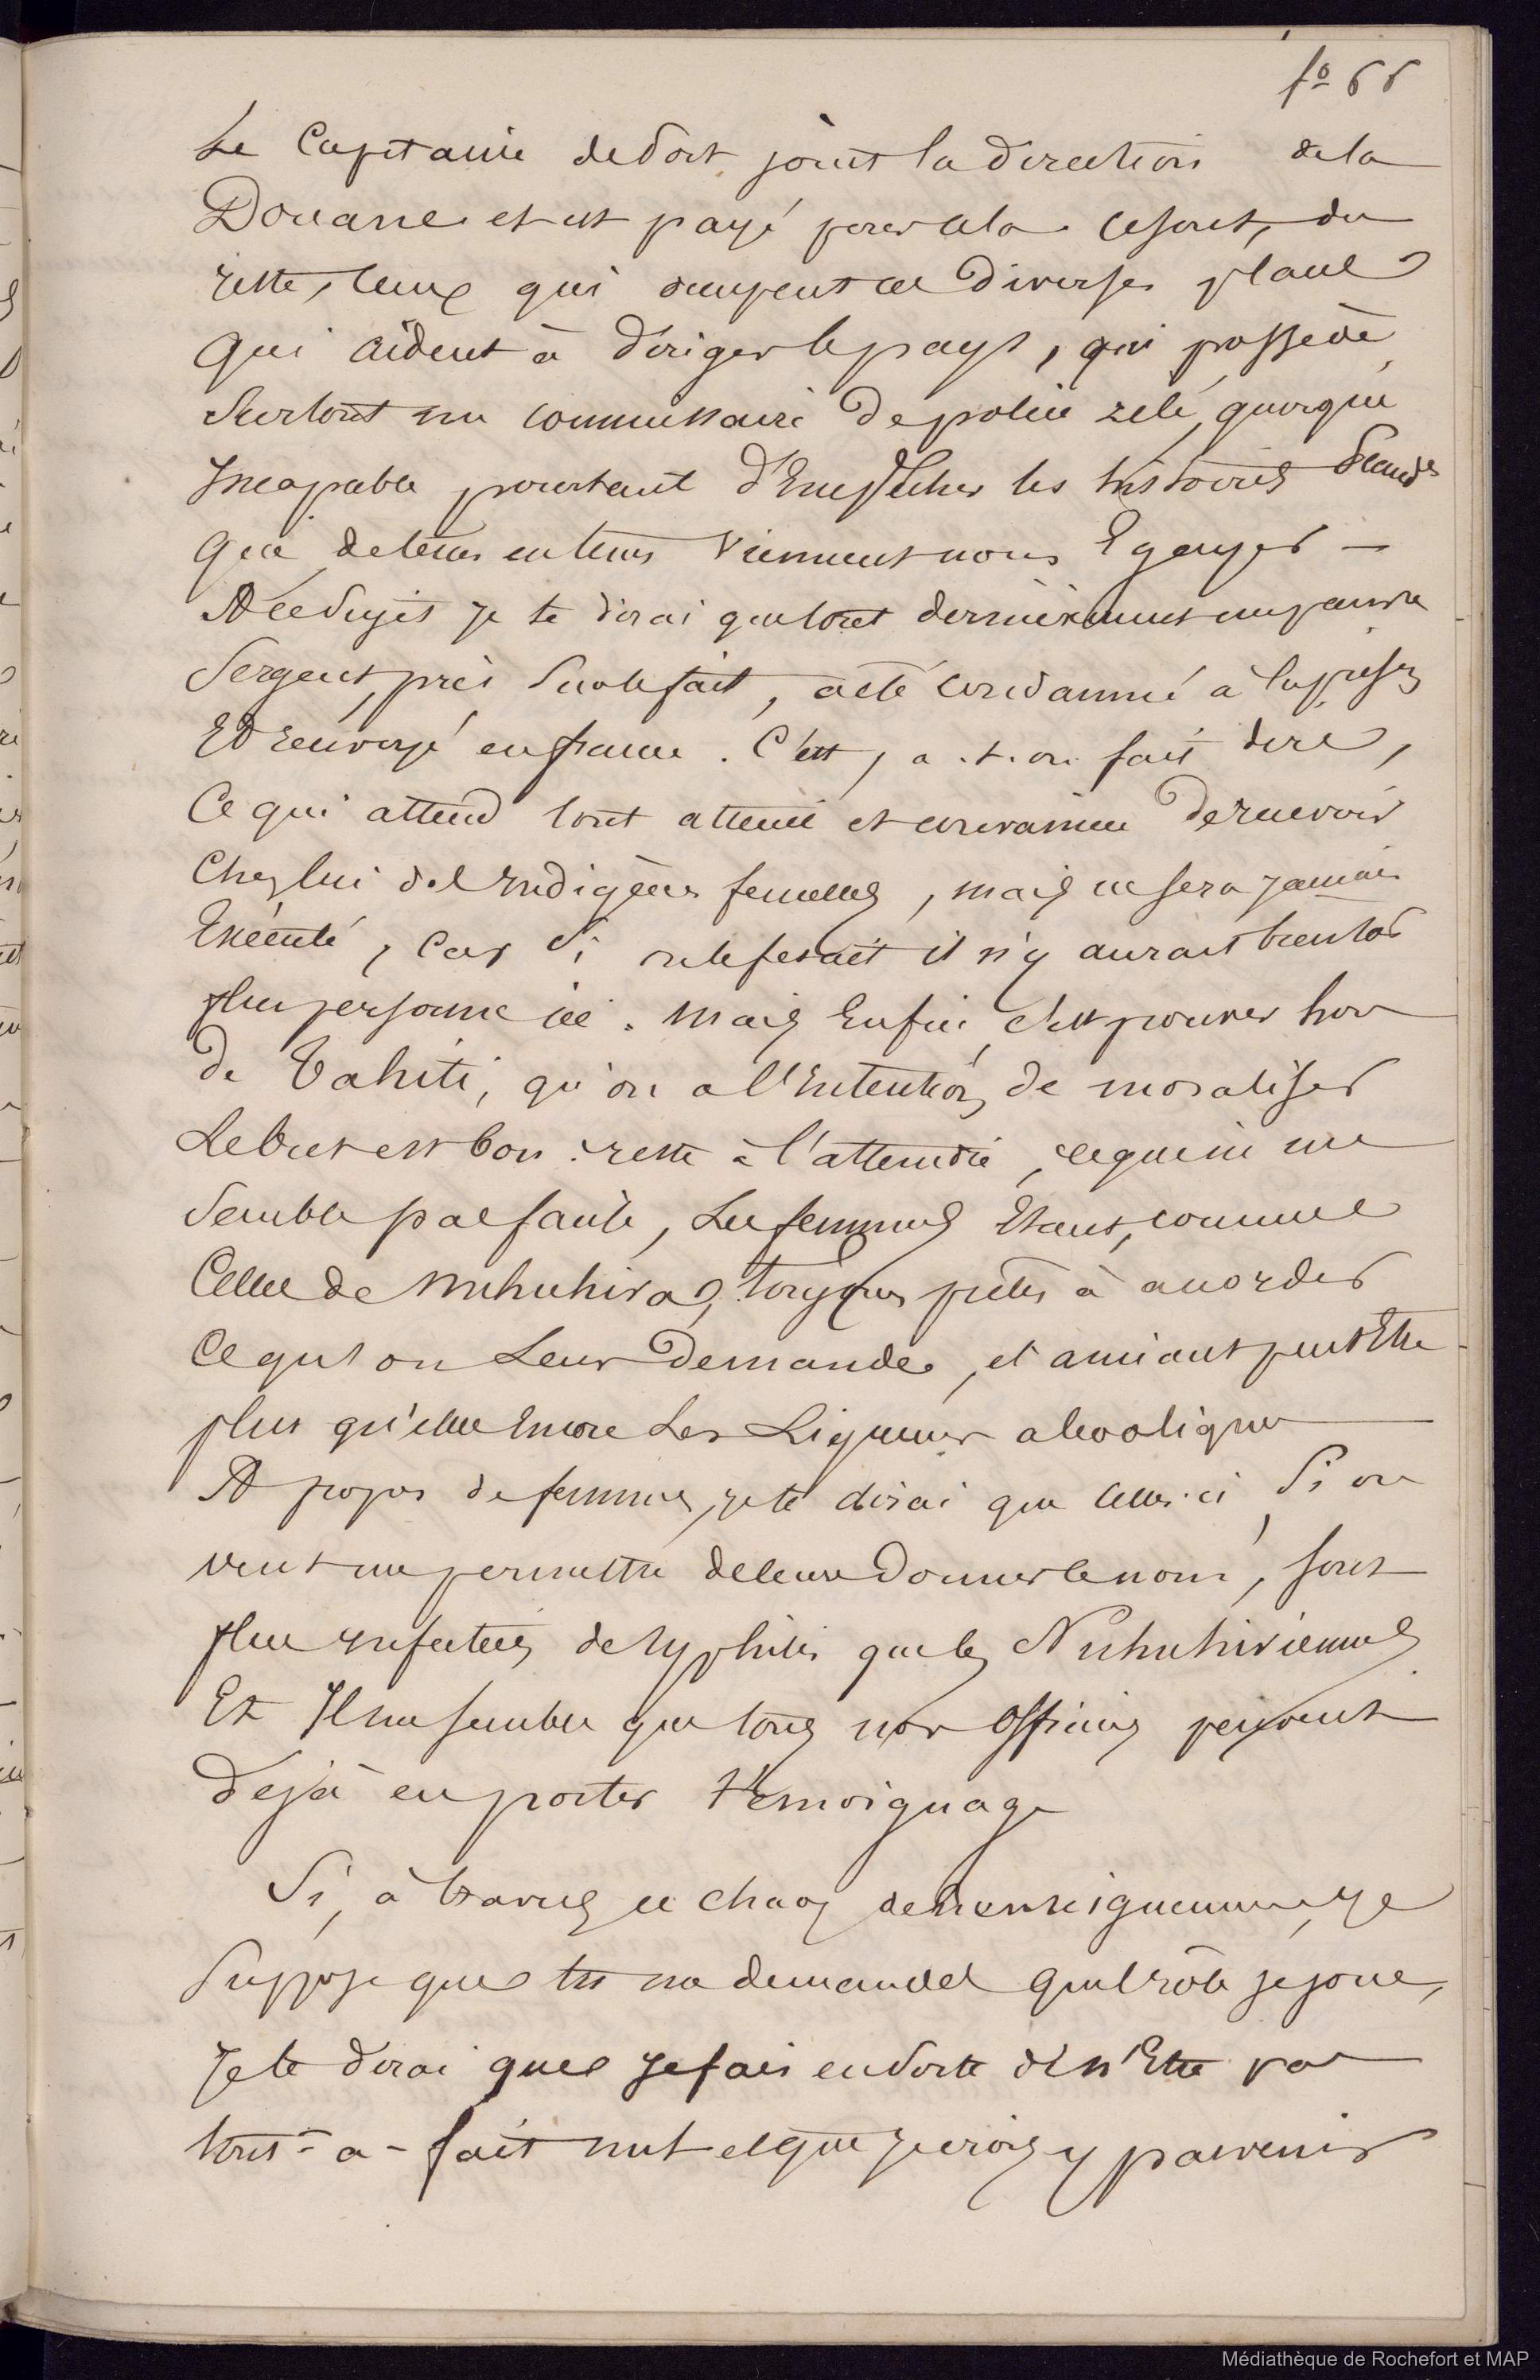 fo 66
Le Capitaine de Port joint la direction de la
Douane et est payé pour cela. Ce sont, du
reste, ceux qui occupent ces diverses places
qui aident à diriger le pays, qui possède
Surtout un commissaire de police zélé, quoique
Incapable pourtant d'Empêcher les histoires Scands
que de tems en tems viennent nous Egayer —
A ce Sujet je te dirai que tout dernièrement un pauvre
Sergent, pris Sur le fait, a été condamné à la prison
Et renvoyé en france. C'est, a-t-on fait dire,
Ce qui attend tout atteint et convaincu de recevoir
Chez lui des Indigènes femelles, mais ce sera jamais
Exécuté, Car Si cela se fesait il n'y aurait bientôt
plus personne ici. Mais Enfin, c'est prouver hors
de Tahiti, qu'on a l'Intention de moraliser
Le but est bon : reste à l'atteindre, ce qui ne me
Semble pas facile, Les femmes Etant, comme
Celles de Nuhuhiva, toujours prêtes à accorder
Ce qu'on Leur Demande, et aimant peut Etre
plus qu'elles Encore Les Liqueurs alcooliques
A propos de femmes, je te dirai que celles-ci, Si on
veut me permettre de leur Donner le nom, sont
plus Infectées de syphilis que les Nuhuhiviennes
Et Il me semble que tous nos Officiers peuvent
Déjà en porter témoignage
Si, à travers ce chaos de renseignements, je
Suppose que tu me demandes quel rôle je joue,
Je te dirai que je fais en Sorte de n'Etre pas
tout-a-fait nul et que je crois y parvenir
Médiathèque de Rochefort et MAP